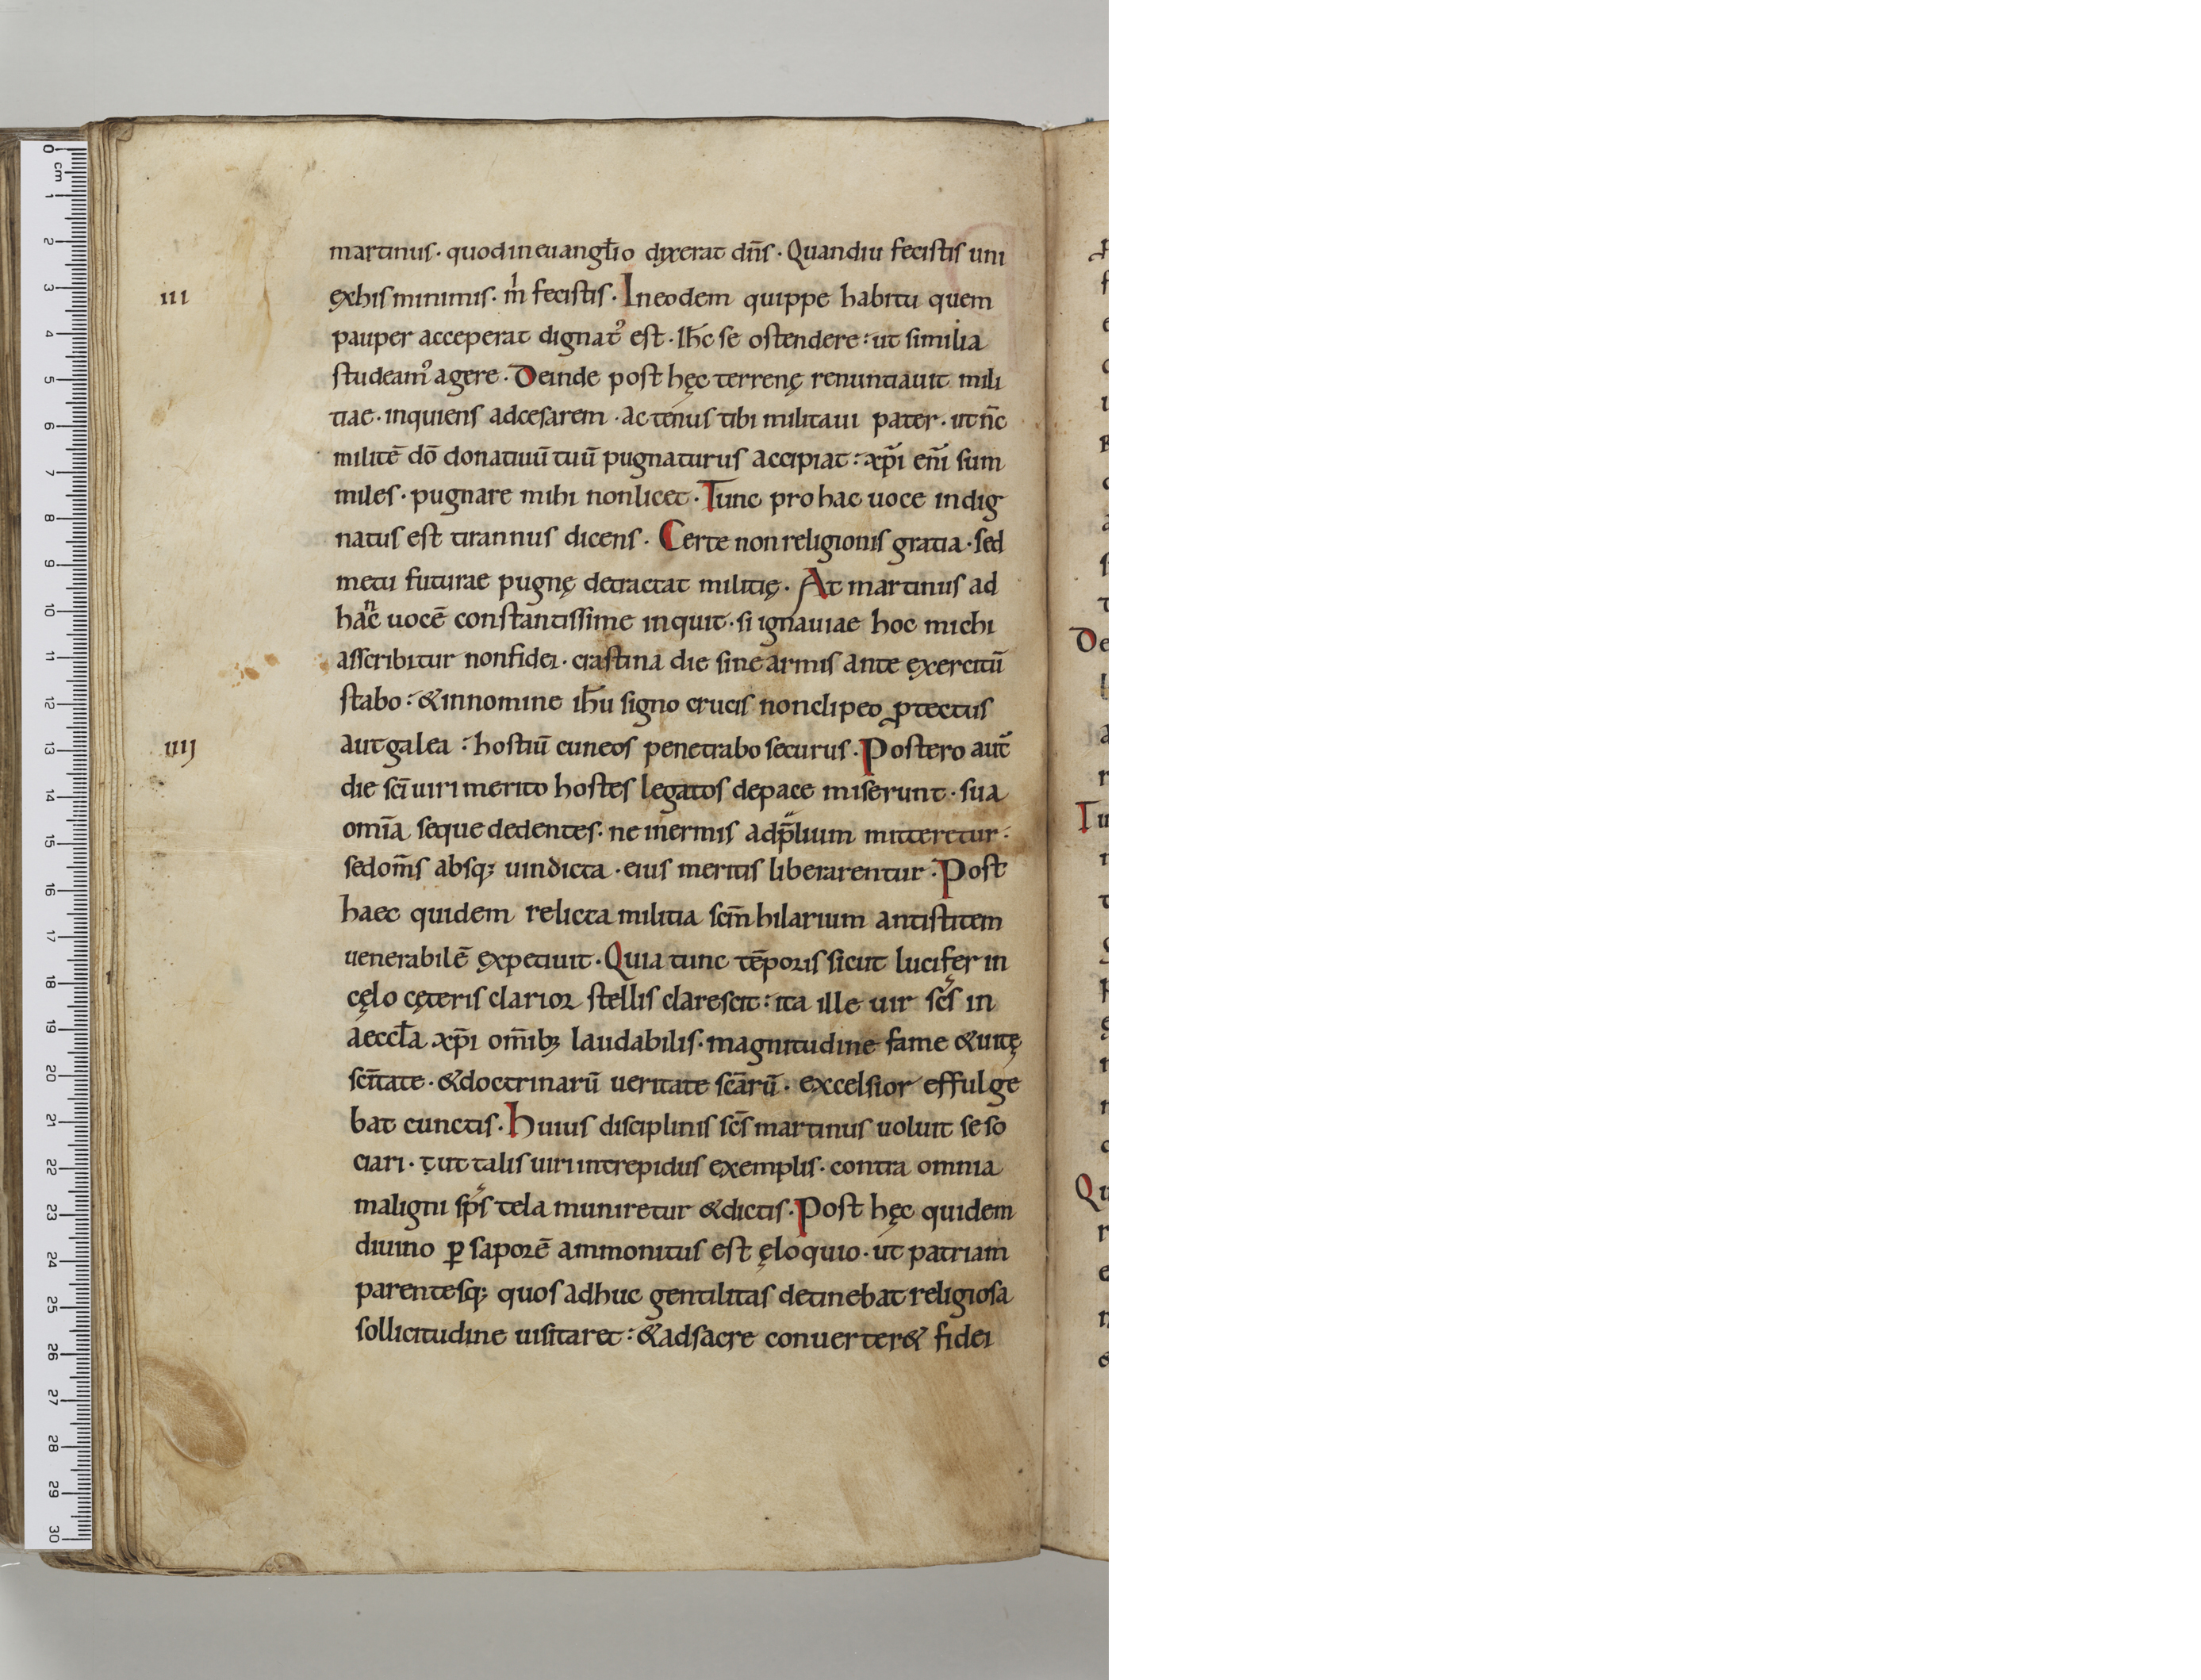 martinus· quod in euangł̄io dyxerat dn̄s· Quandiu fecistis uni
iii
ęx his minimis· m̍ fecistis· In eodem quippe habitu quem
pauper acceperat dignatꝰ est· Ih̄c se ostendere: ut similia
studeamꝰ agere· Deinde post hęc terrenę renuntiauit mili
tiae· inquiens ad cesarem· ac tenus tibi militaui pater· ut nc̄
militē dō donatiuū tuū pugnaturus accipiat: xp̄i eni̅ sum
miles· pugnare mihi non licet· Tunc pro hac uoce indig
natus est tirannus dicens· Certe non religionis gratia· sed
metu futurae pugnę detractat militię· At martinus ad
hanc uocē constantissime inquit· si ignauiae hoc michi
asscribitur non fidei· crastina die sine armis ante ęxercitū
stabo: & in nomine ih̄u signo crucis non clipeo ꝓtectus
iiij
aut galea: hostiū cuneos penetrabo securus· Postero aut̄
die sc̄i uiri merito hostes legatos de pace miserunt· sua
omīa seque dedentes· ne inermis ad p̄lium mitteretur·
sed om̄s absq; uindicta· eius meritis liberarentur· Post
haec quidem relicta militia sc̄m hilarium antistitem
uenerabilē ęxpetiuit· Quia tunc tēporis sicut lucifer in
cęlo cęteris clarior stellis clarescit: ita ille uir sc̄s in
aeccł̄a xp̄i om̄ibꝫ laudabilis· magnitudine fame & uitę
sc̄itate· & doctrinarū ueritate sc̄arū· excelsior effulge
bat cunctis· Huius disciplinis sc̄s martinus uoluit se so
ciari· ut talis uiri intrepidus exemplis· contra omnia
maligni sp̄s tela muniretur & dictis· Post hęc quidem
diuino ꝑ saporē ammonitus est ęloquio· ut patriam
parentesq; quos adhuc gentilitas detinebat religiosa
sollicitudine uisitaret: & ad sacre conuerter& fidei
De
Tu
Qu